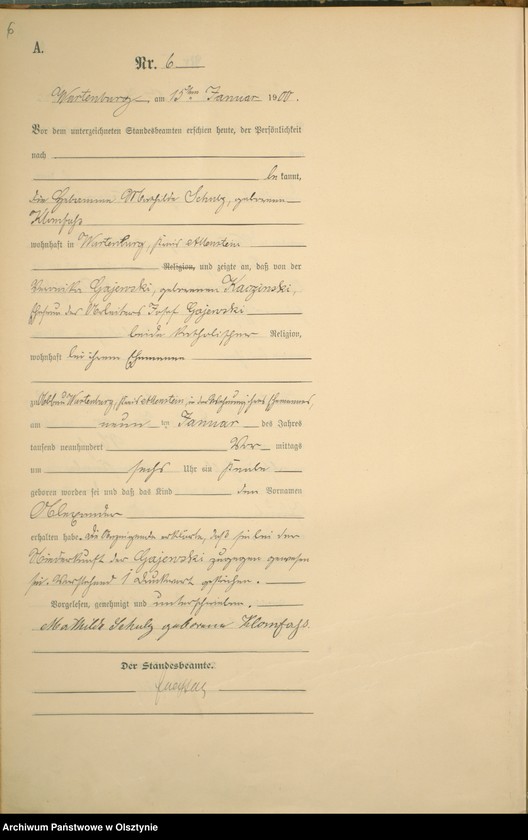 6
A.
Nr. 6
Wartenburg am 15ten Januar 1900.
Vor dem unterzeichneten Standesbeamten erschien heute, der Persönlichkeit
nach
be kannt,
die Hebamme Mathilde Schulz, geborene
Klomfaß
wohnhaft in Wartenburg, Kreis Allenstein
Religion, und zeigte an, daß von der
Veronika Gajewski, geborenen Kaczinski,
Ehefrau des Arbeiters Josef Gajewski
beide katholischer Religion,
wohnhaft bei ihrem Ehemanne
zu Abbau Wartenburg, Kreis Allenstein, in der Wohnung ihres Ehemannes,
am neun ten Januar des Jahres
tausend neunhundert Vor mittags
um sechs Uhr ein Knabe
geboren worden sei und daß das Kind den Vornamen
Alexander
erhalten habe. Die Anzeigende erklärte, daß sie bei der
Niederkunft der Gajewski zugegen gewesen
sei. Vorstehend 1 Druckwort gestrichen.
Vorgelesen, genehmigt und unterschrieben.
Mathilde Schulz geborene Klomfass.
Der Standesbeamte.
Archiwum Państwowe w Olsztynie